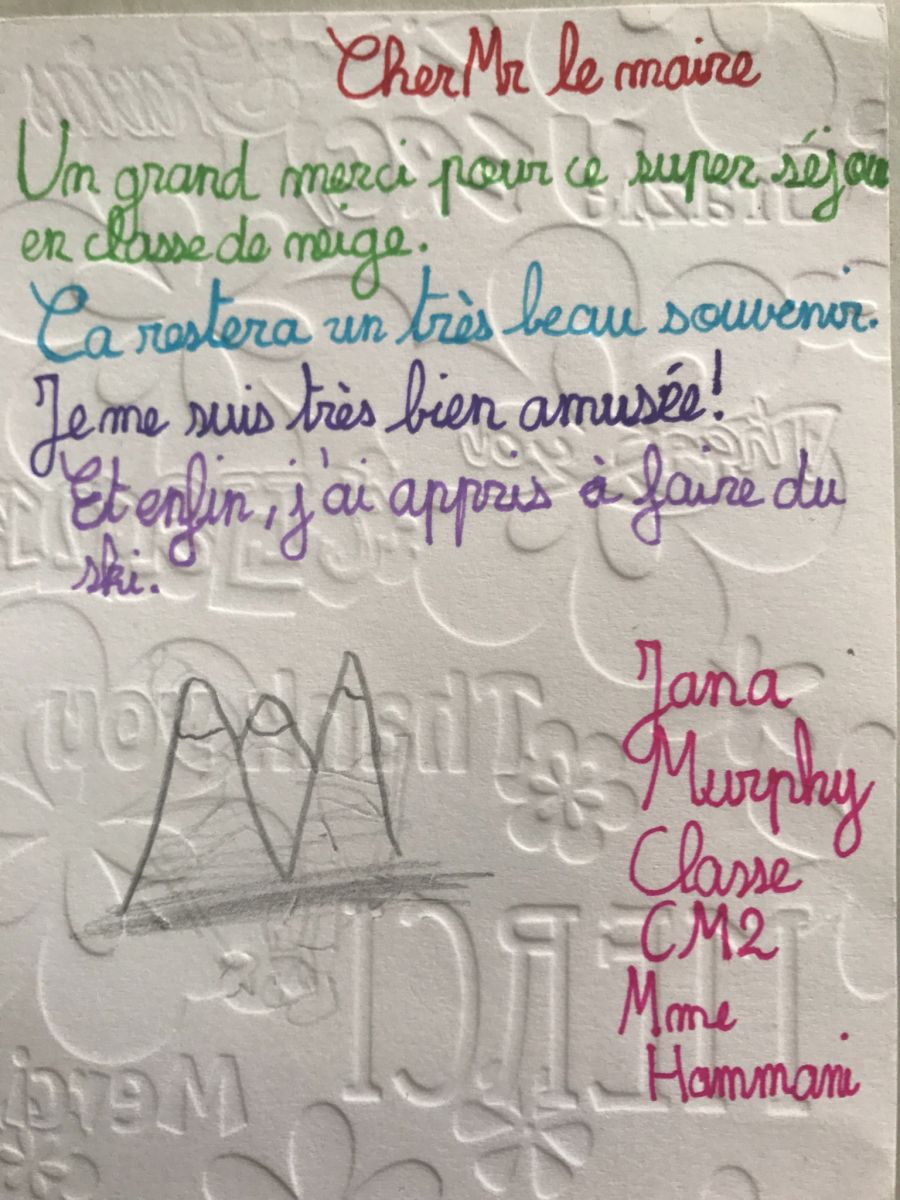 Cher Mr le maire
Un grand merci pour ce super séjour
en classe de neige.
Ca restera un très beau souvenir.
Je me suis très bien amusée!
Et enfin, j'ai appris à faire du
ski.
Jana
Murphy
Classe
CM2
Mme
Hammani
Thank you
Thank you
MERCI
Merci